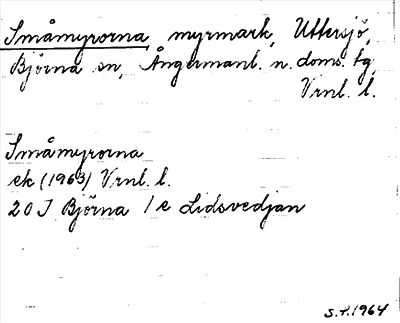 Småmyrorna, myrmark, Uttersjö,
Björna sn, Ångermanl. n. doms. tg,
Vrnl. l.
Småmyrorna
ek (1963) Vrnl. l.
20 J Björna 1 e Lidsvedjan
S.P. 1964